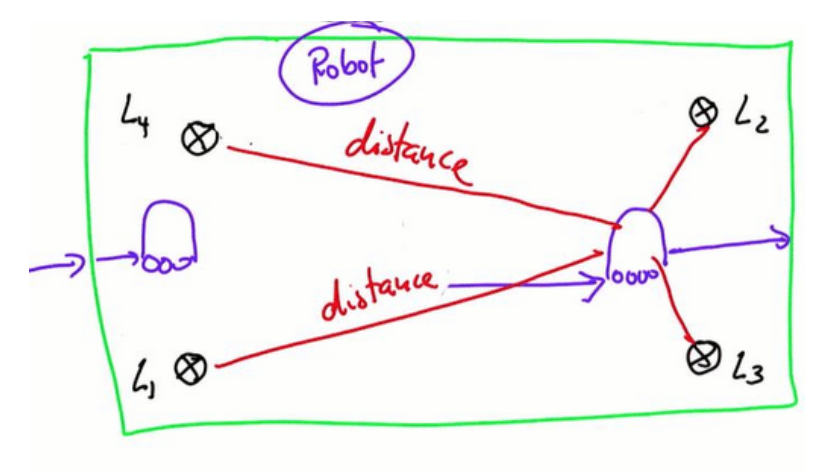 Robot
L4
distance
L2
distance
L1
L3